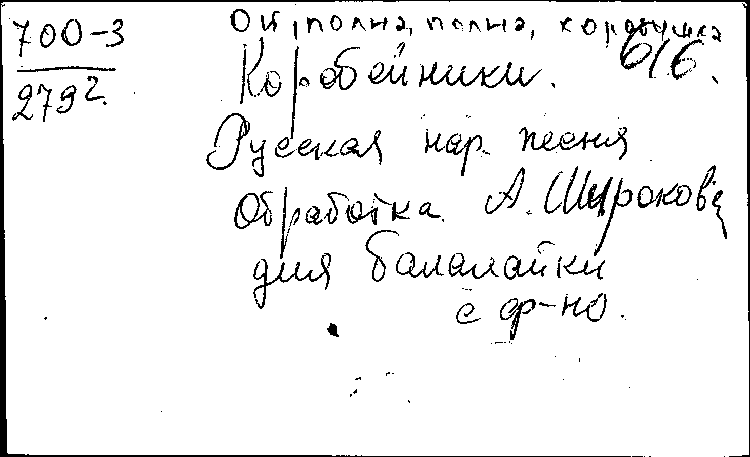 700-3
279²
Ой, полна, полна, коробушка
616.
Коробейники.
Русская нар. песня
Обработка А. Широкова
для балалайки
с ф-но.